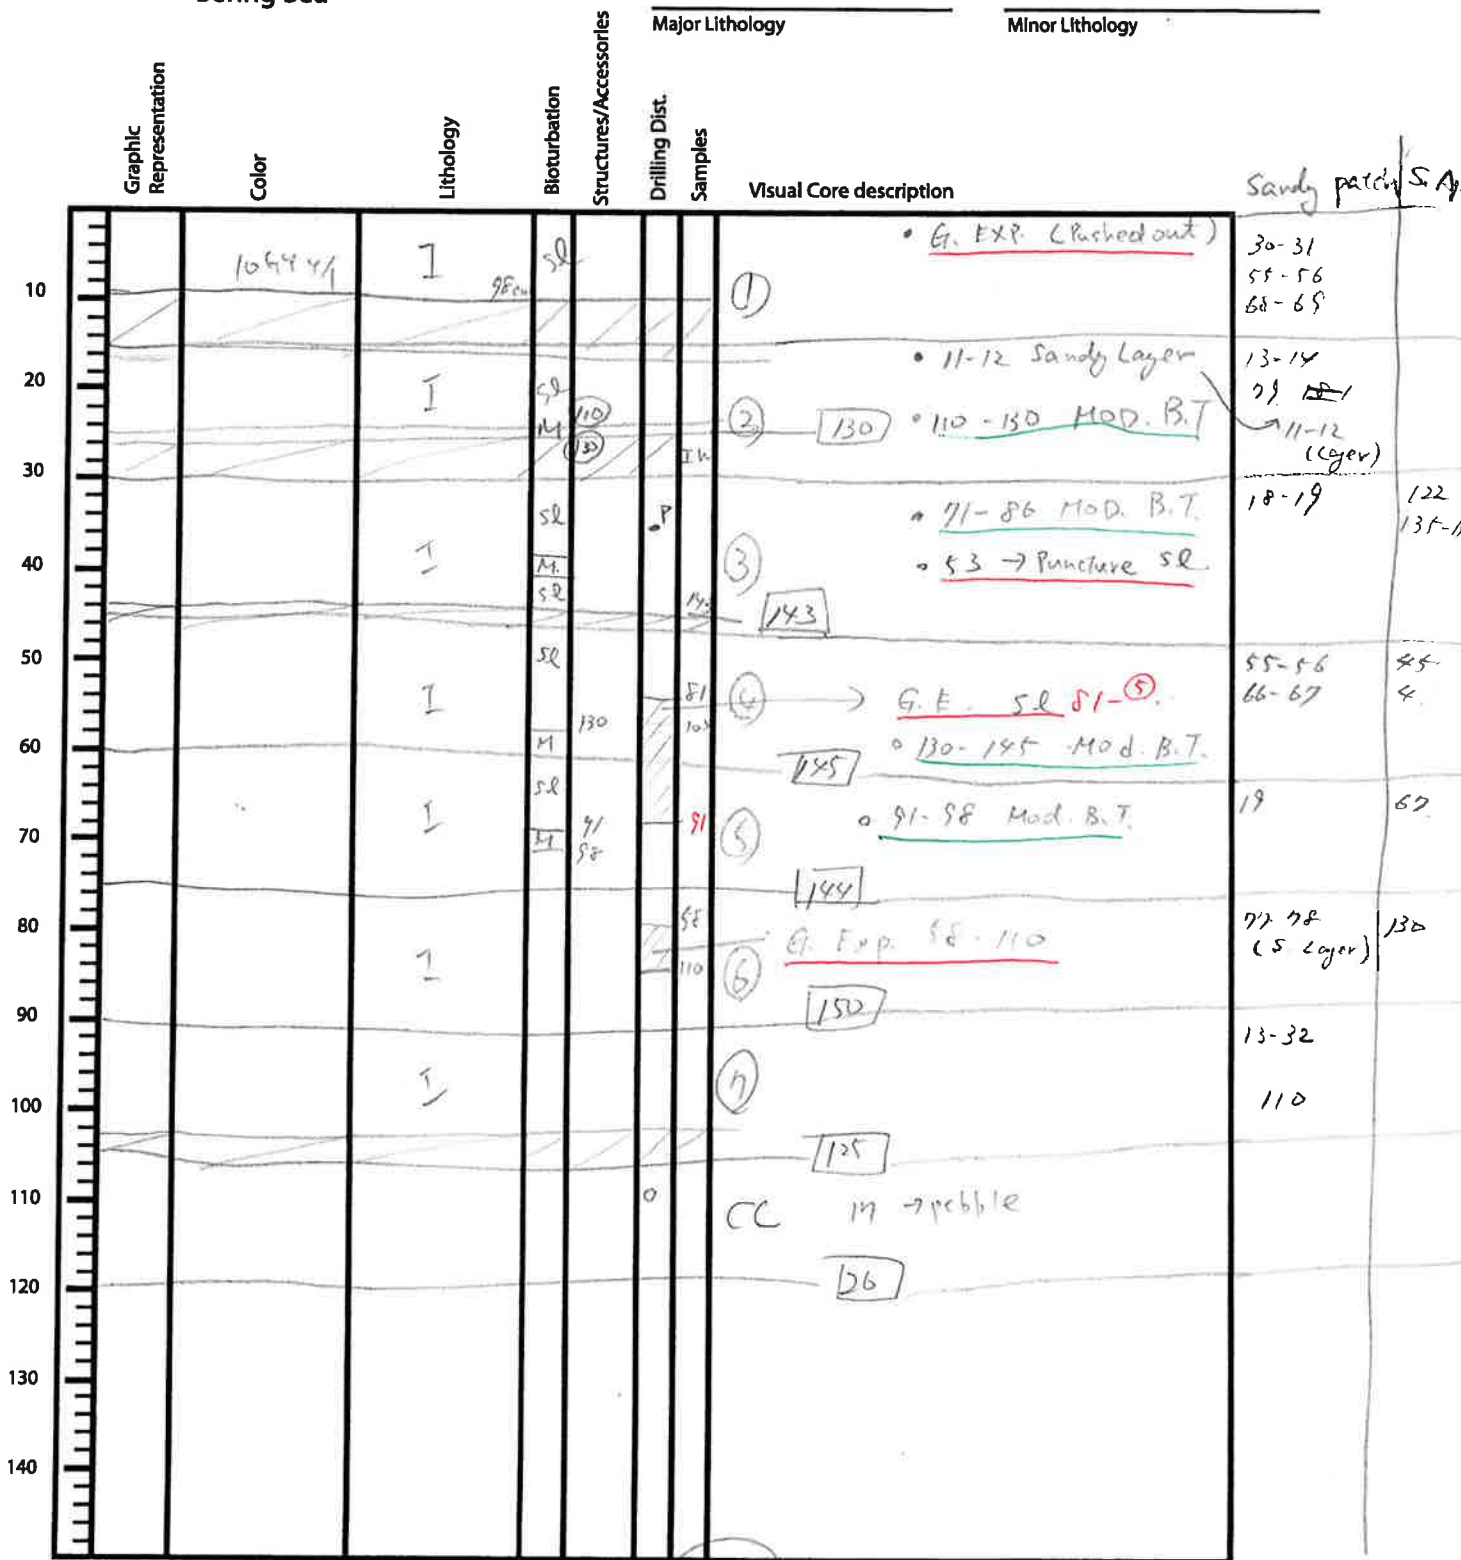 Major Lithology
Minor Lithology
Graphic Representation
Color
Lithology
Bioturbation
Structures/Accessories
Drilling Dist.
Samples
Visual Core description
Sandy
10
20
30
40
50
60
70
80
90
100
110
120
130
140
I
sl
98cm
1
• G. EXP. (Pushed out)
30-31
55-56
68-69
I
sl
M
110
130
2
130
• 11-12 Sandy Layer
• 110-130 MOD. B.T
13-14
11-12
(Layer)
I
sl
M.
sl
P
3
143
• 71-86 MOD. B.T.
• 53 → Puncture sl.
18-19
122
I
sl
M
130
81
4
145
G.E. sl 81-5.
• 130-145 Mod. B.T.
55-56
66-67
45
4
I
sl
M
91
98
91
5
144
• 91-98 Mod. B.T.
19
67
I
58
110
6
150
G. Exp. 58-110
77-78
(S. Layer)
130
I
7
125
13-32
110
CC 17 → pebble
26